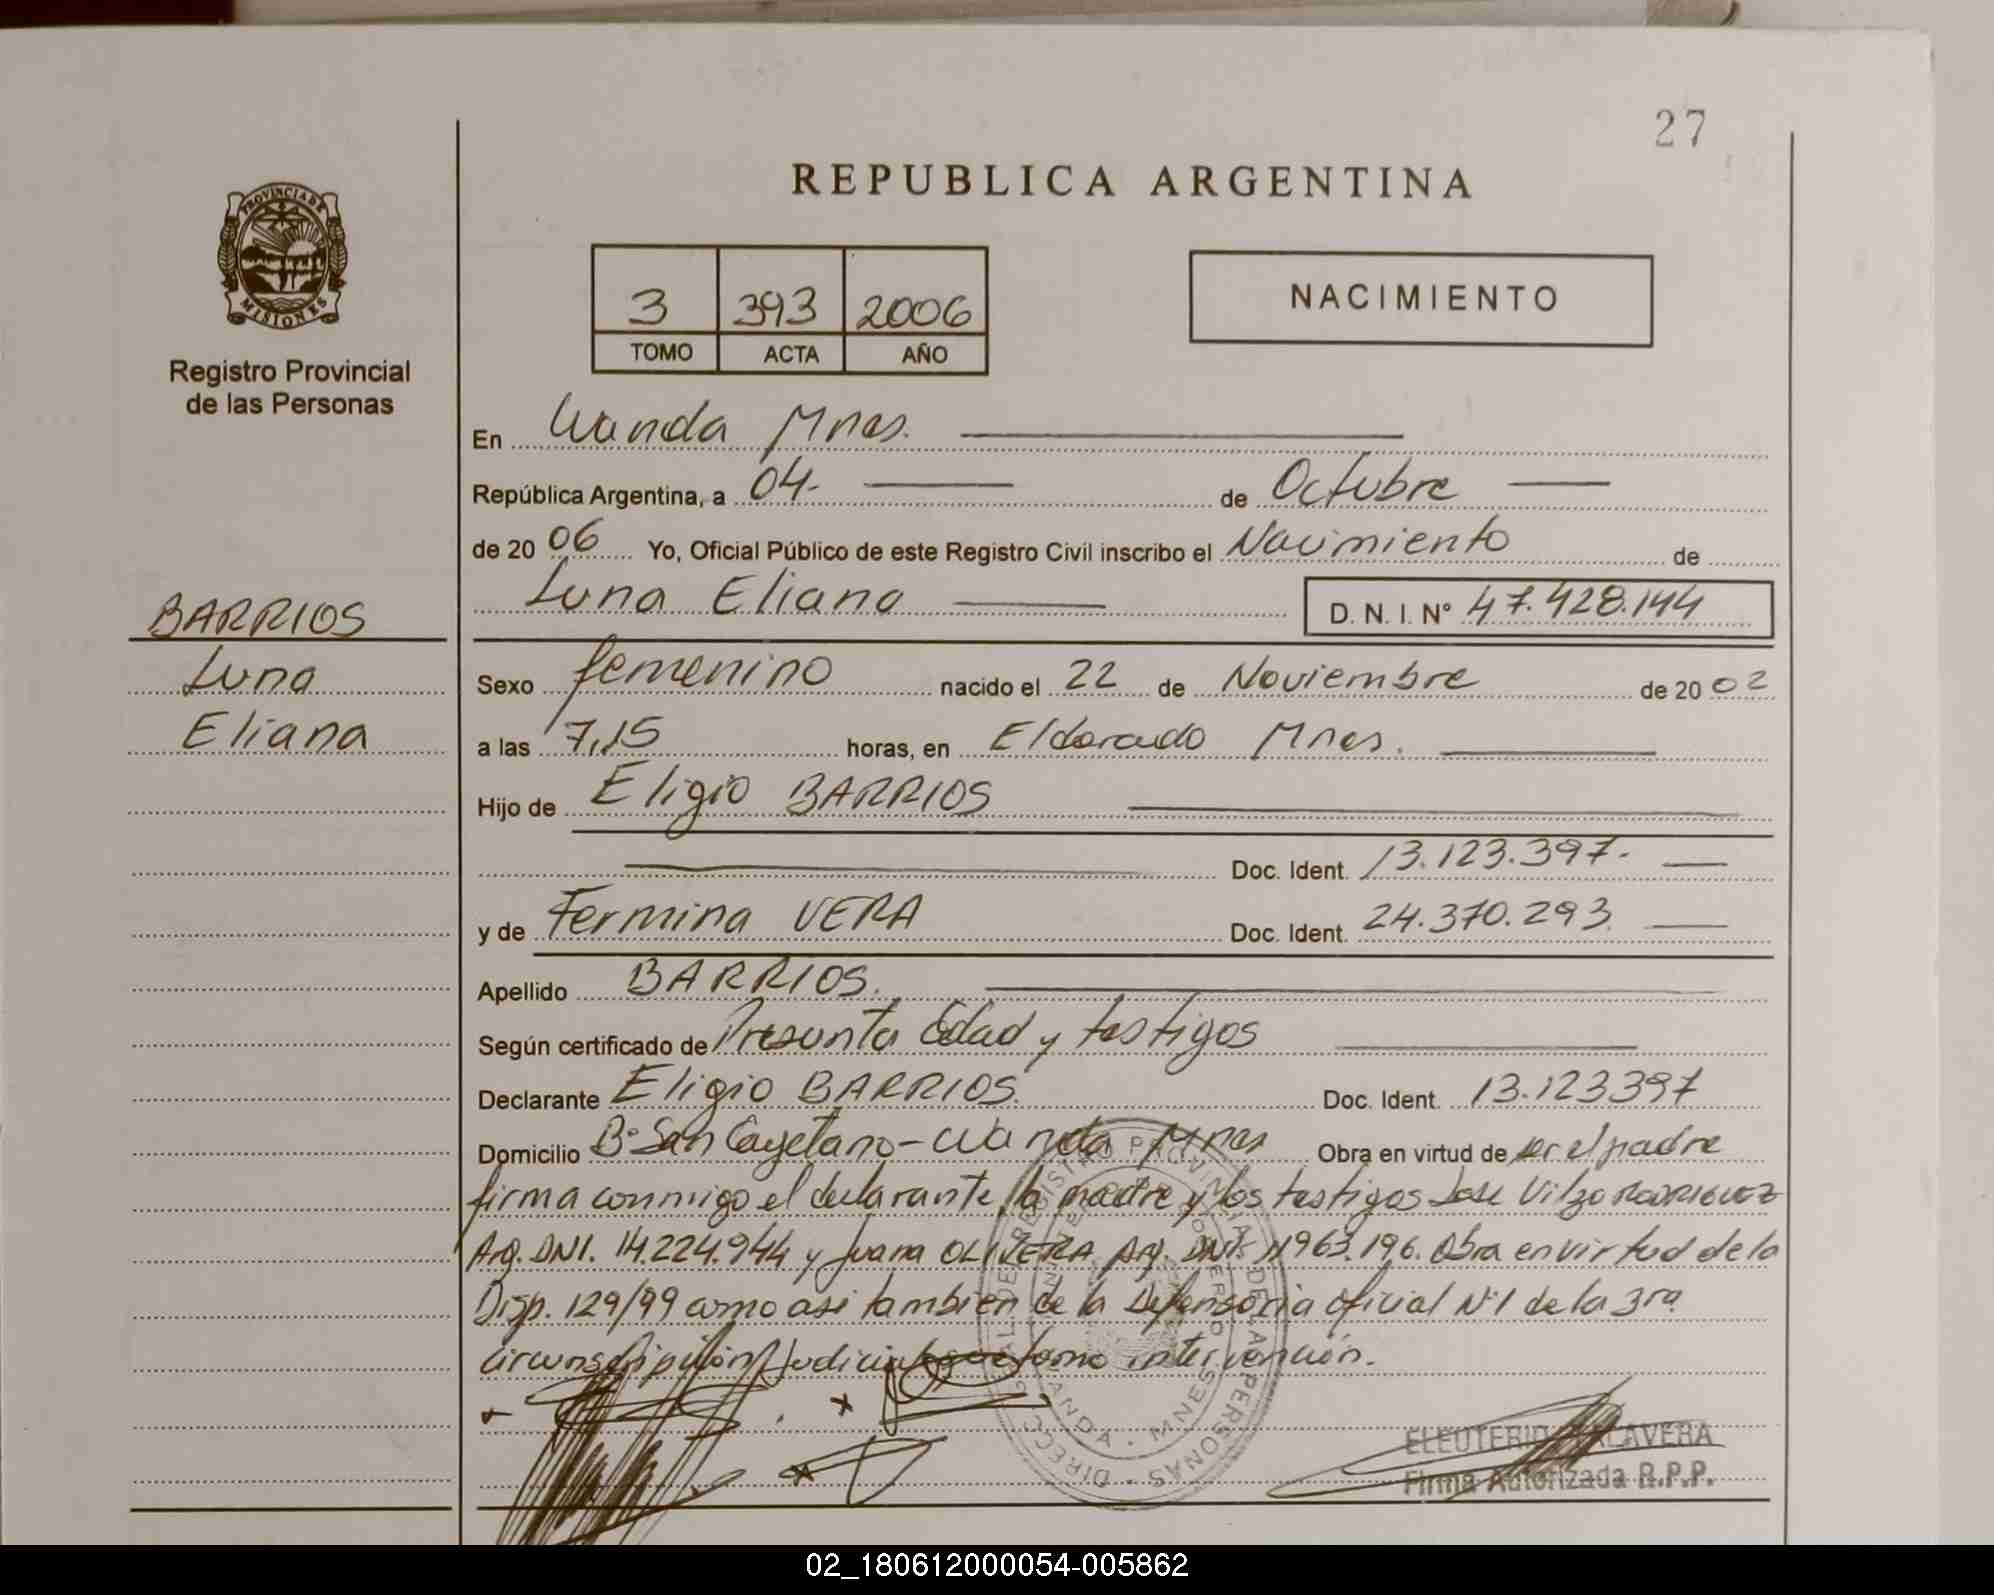 27
REPUBLICA ARGENTINA
PROVINCIA DE MISIONES
Registro Provincial
de las Personas
3 393 2006
TOMO ACTA AÑO
NACIMIENTO
En Wanda Mnes.
República Argentina, a 04- de Octubre
de 2006 Yo, Oficial Público de este Registro Civil inscribo el Nacimiento de
Luna Eliana D. N. I. Nº 47.428.144
BARRIOS
Luna
Eliana
Sexo femenino nacido el 22 de Noviembre de 2002
a las 7,15 horas, en Eldorado Mnes.
Hijo de Eligio BARRIOS
Doc. Ident. 13.123.397.-
y de Fermina VERA Doc. Ident. 24.370.293.
Apellido BARRIOS.
Según certificado de Presunta Edad y testigos
Declarante Eligio BARRIOS. Doc. Ident. 13.123397
Domicilio Bº San Cayetano - Wanda Mnes Obra en virtud de ser el padre
firma conmigo el declarante, la madre y los testigos Jose Vilzo RODRIGUEZ
Arg. DNI. 14.224.944 y Juana OLIVERA Arg. DNI. 11963.196. Obra en virtud de la
Disp. 129/99 como asi tambien de la Defensoria oficial Nº1 de la 3ra
circunscripción Judicial que tomo intervención.
ELEUTERIO TALAVERA
Firma Autorizada R.P.P.
02_180612000054-005862